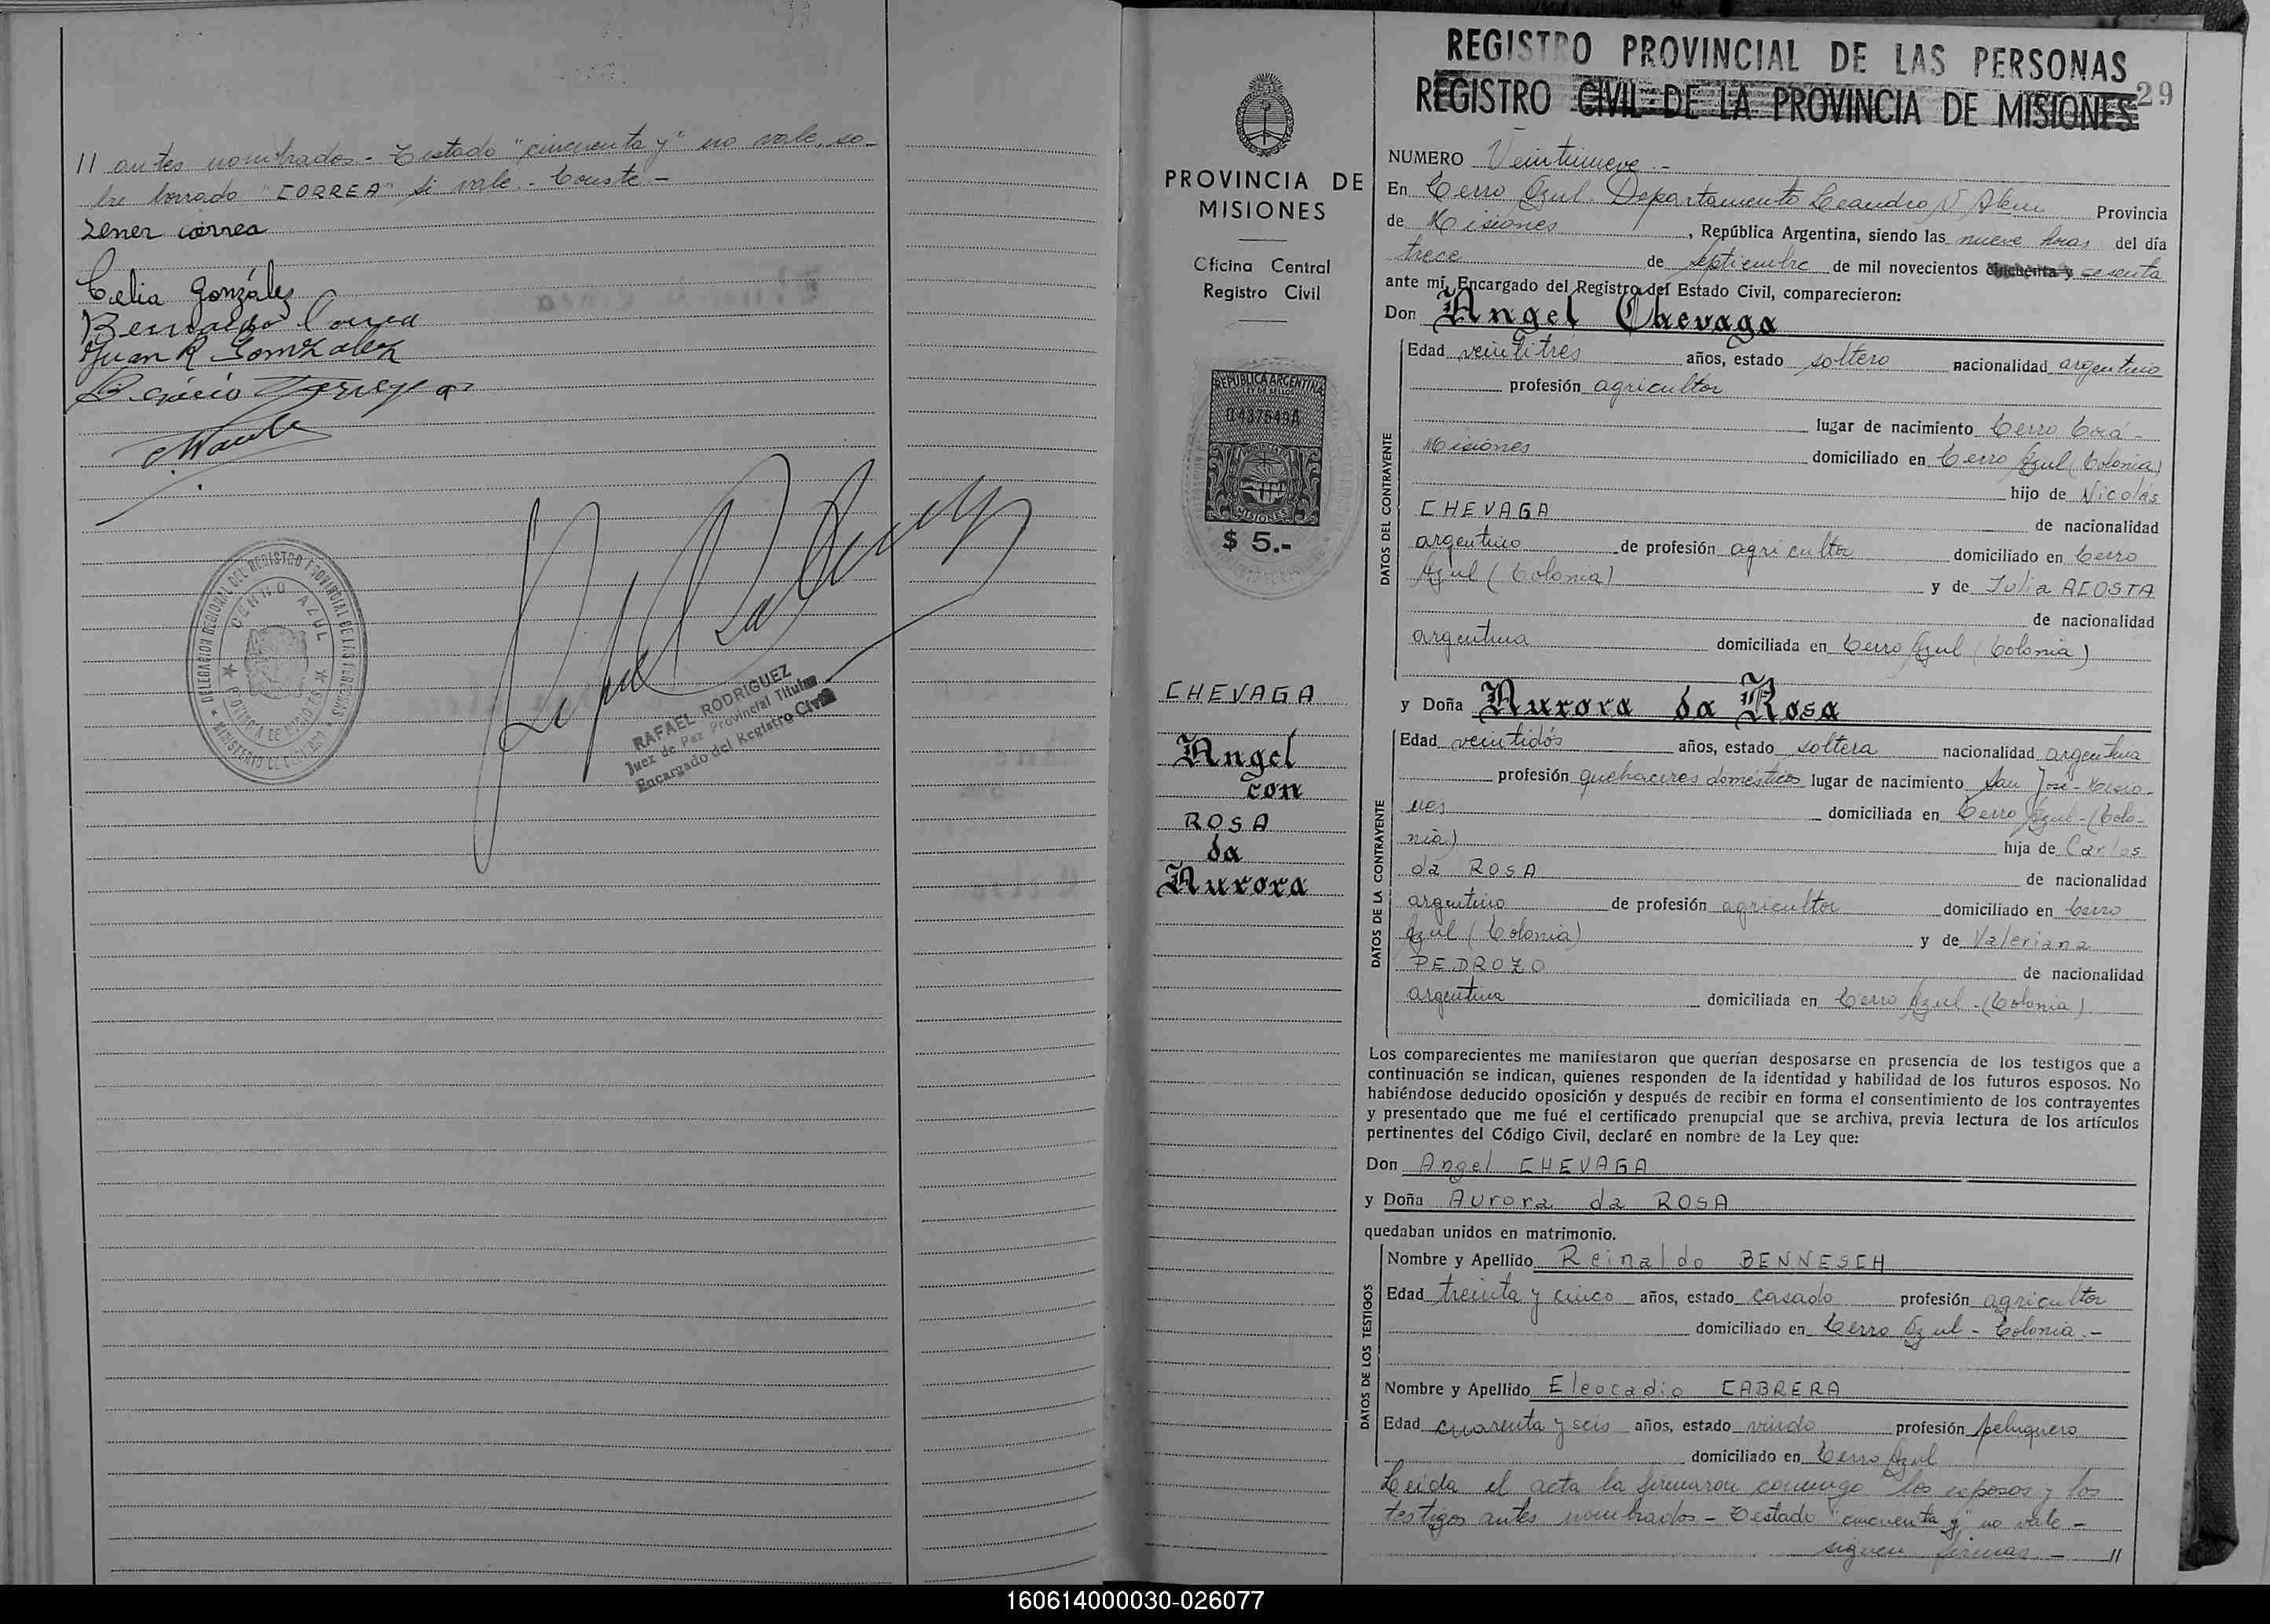 // antes nombrados - Testado "cincuenta y" no vale, so-
bre borrado "CORREA" si vale.- Conste.-
Zener correa
Celia González
Bernaldo Correa
Juan R Gomzalez
RAFAEL RODRIGUEZ
Juez de Paz Provincial Titular
Encargado del Registro Civil
DELEGACION REGIONAL DEL REGISTRO PROVINCIAL DE LAS PERSONAS
CERRO AZUL
PROVINCIA DE MISIONES
MINISTERIO DE GOBIERNO
PROVINCIA DE
MISIONES
Oficina Central
Registro Civil
REPUBLICA ARGENTINA
LEY DE SELLOS
0437549A
MISIONES
$ 5.-
CHEVAGA
Angel
con
ROSA
da
Aurora
REGISTRO PROVINCIAL DE LAS PERSONAS
REGISTRO CIVIL DE LA PROVINCIA DE MISIONES
29
NUMERO Veintinueve.-
En Cerro Azul. Departamento Leandro N Alem Provincia
de Misiones, República Argentina, siendo las nueve horas del día
trece de septiembre de mil novecientos cincuenta y cesenta
ante mí, Encargado del Registro del Estado Civil, comparecieron:
Don Angel Chevaga
DATOS DEL CONTRAYENTE
Edad veintitrés años, estado soltero nacionalidad argentino
profesión agricultor
lugar de nacimiento Cerro Corá-
Misiones domiciliado en Cerro Azul (Colonia)
hijo de Nicolás
CHEVAGA de nacionalidad
argentino de profesión agricultor domiciliado en Cerro
Azul (Colonia) y de Julia ACOSTA
de nacionalidad
argentina domiciliada en Cerro Azul (Colonia)
y Doña Aurora da Rosa
DATOS DE LA CONTRAYENTE
Edad veintidós años, estado soltera nacionalidad argentina
profesión quehaceres domésticos lugar de nacimiento San José-Misio-
nes domiciliada en Cerro Azul-(Colo-
nia) hija de Carlos
da ROSA de nacionalidad
argentino de profesión agricultor domiciliado en Cerro
Azul (Colonia) y de Valeriana
PEDROZO de nacionalidad
argentina domiciliada en Cerro Azul-(Colonia)
Los comparecientes me manifestaron que querían desposarse en presencia de los testigos que a
continuación se indican, quienes responden de la identidad y habilidad de los futuros esposos. No
habiéndose deducido oposición y después de recibir en forma el consentimiento de los contrayentes
y presentado que me fué el certificado prenupcial que se archiva, previa lectura de los artículos
pertinentes del Código Civil, declaré en nombre de la Ley que:
Don Angel CHEVAGA
y Doña Aurora da ROSA
quedaban unidos en matrimonio.
DATOS DE LOS TESTIGOS
Nombre y Apellido Reinaldo BENNESCH
Edad treinta y cinco años, estado casado profesión agricultor
domiciliado en Cerro Azul - Colonia.-
Nombre y Apellido Eleocadio CABRERA
Edad cuarenta y seis años, estado viudo profesión peluquero
domiciliado en Cerro Azul
Leída el acta la firmaron conmigo los esposos y los
testigos antes nombrados - Testado "cincuenta y" no vale.-
siguen firmas - //
160614000030-026077